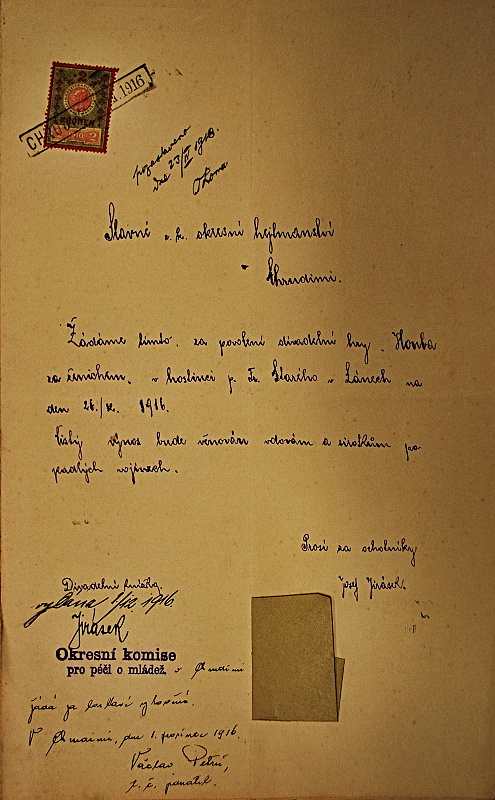 CH 1916
KORUN
2
dne 23/IV 1918.
Slavné c. k. okresní hejtmanství
v
Chrudimi.
Žádáme tímto, za povolení divadelní hry „Honba
za ženichem, v hostinci p. Fr. Starého v Lánech na
den 26./12. 1916.
Čistý výnos bude věnován vdovám a sirotkům po
padlých vojínech.
Prosí za ochotníky
Josef Jirásek.
Divadelní knížka
vydána 1/12. 1916.
Jirásek
Okresní komise
pro péči o mládež. v Chrudimi
žádá za laskavé vyhovění.
V Chrudimi, dne 1. prosince 1916.
Václav Petrů,
t. č. jednatel.